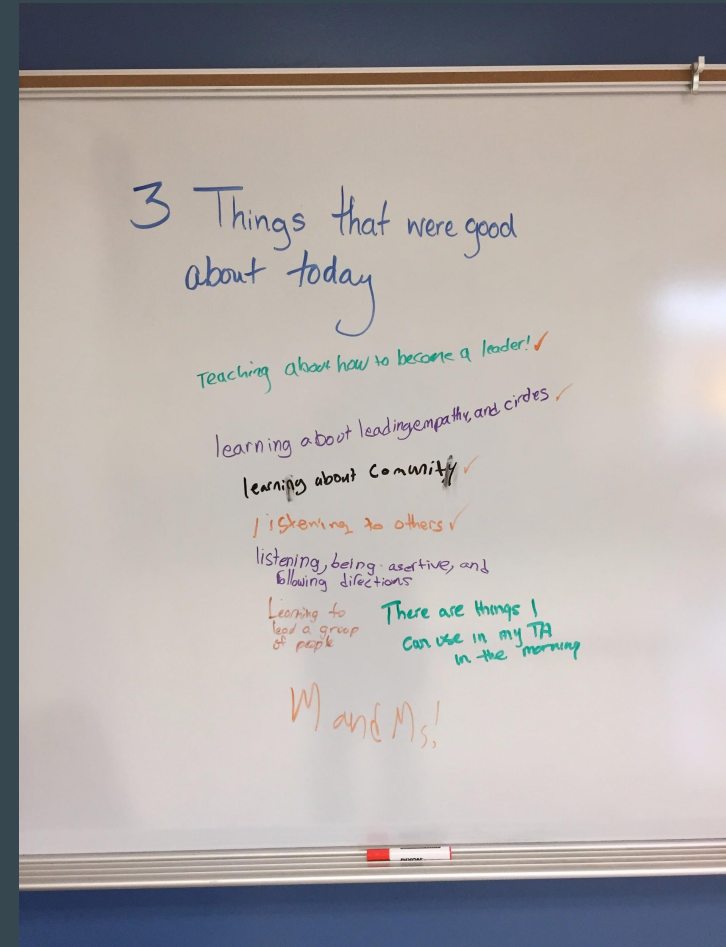 3 Things that were good
about today
Teaching about how to become a leader! ✓
learning about leading, empathy, and circles ✓
learning about Comunity ✓
listening to others ✓
listening, being asertive, and
following directions
Learning to
lead a group
of people
There are things I
can use in my TA
in the morning
M and Ms!